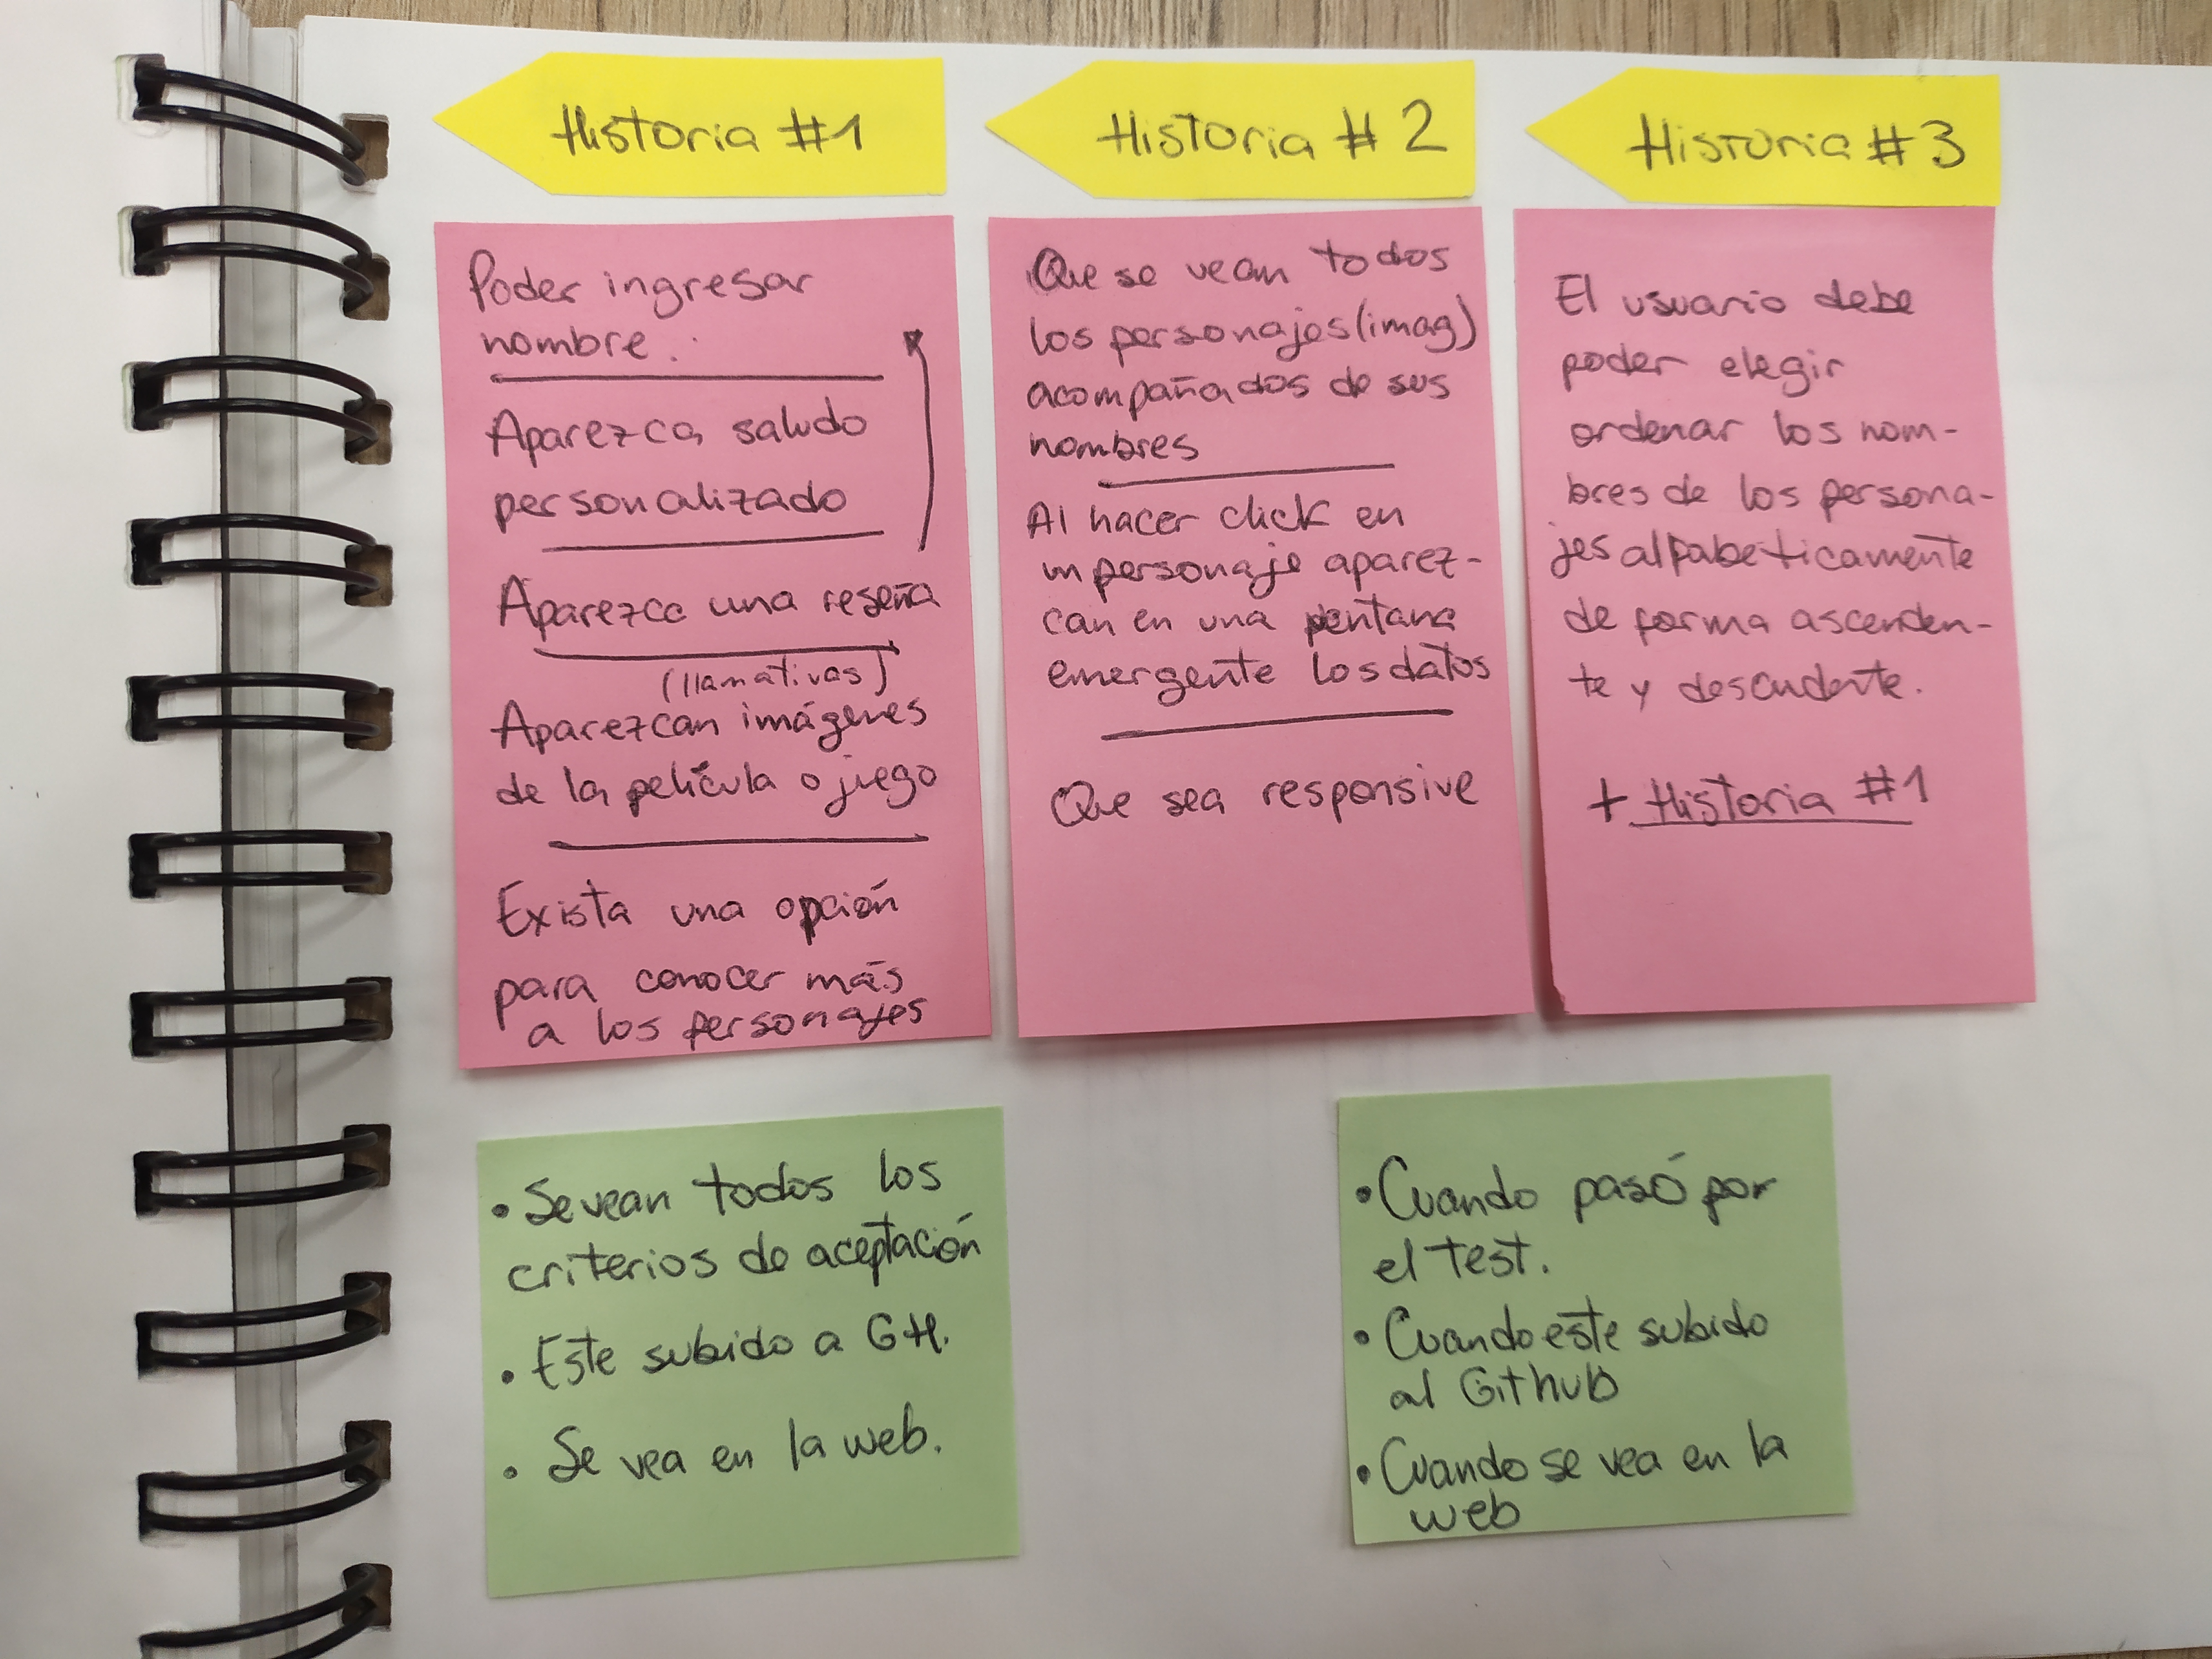 Historia #1
Poder ingresar
nombre.
Aparezca saludo
personalizado
Aparezca una reseña
(llamativas)
Aparezcan imágenes
de la película o juego
Exista una opción
para conocer más
a los personajes
• Se vean todos los
criterios de aceptación
• Este subido a GH.
• Se vea en la web.
Historia #2
Que se vean todos
los personajes (imag)
acompañados de sus
nombres
Al hacer click en
un personaje aparez-
can en una ventana
emergente los datos
Que sea responsive
Historia #3
El usuario debe
poder elegir
ordenar los nom-
bres de los persona-
jes alfabeticamente
de forma ascenden-
te y descendente.
+ Historia #1
• Cuando pasó por
el test.
• Cuando este subido
al Github
• Cuando se vea en la
web